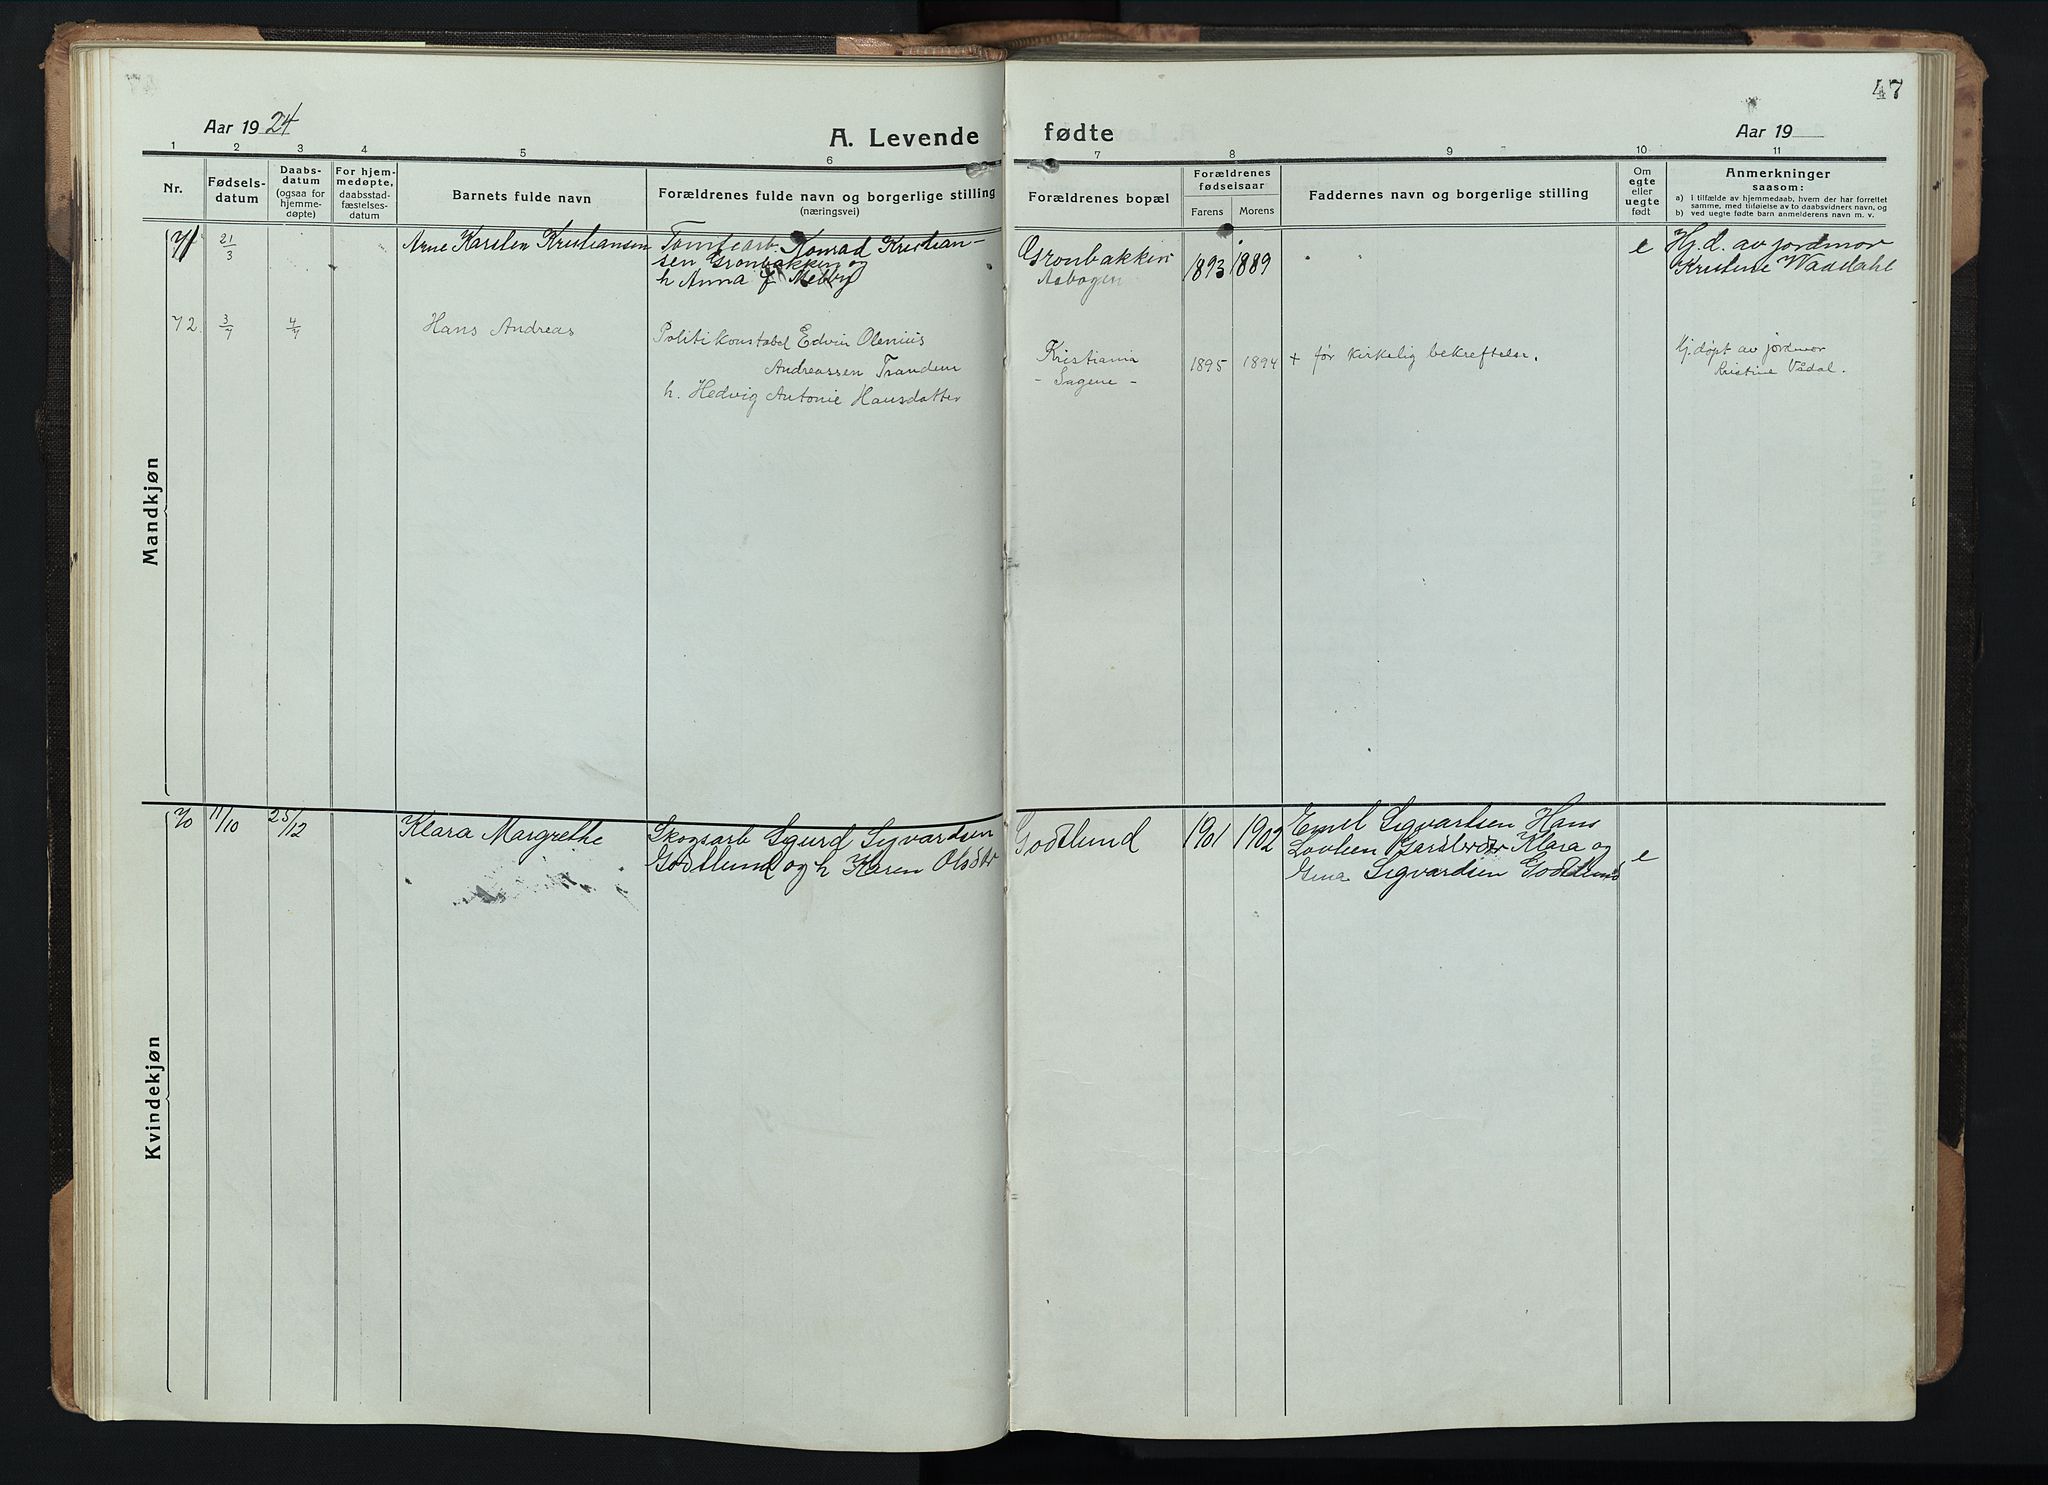 47
Aar 1924
A. Levende
fødte
Aar 19
1 2 3 4 5 6 7 8 9 10 11
Nr.
Fødsels-
datum
Daabs-
datum
(ogsaa for
hjemme-
døpte)
For hjem-
medøpte,
daabsstad-
fæstelses-
datum
Barnets fulde navn
Forældrenes fulde navn og borgerlige stilling
(næringsvei)
Forældrenes bopæl
Forældrenes
fødselsaar
Farens Morens
Faddernes navn og borgerlige stilling
Om
egte
eller
uegte
født
Anmerkninger
saasom:
a) i tilfælde av hjemmedaab, hvem der har forrettet
samme, med tilføielse av to daabsvidners navn, og
b) ved uegte fødte barn anmelderens navn m. v.
Mandkjøn
71 21/3 Arne Karsten Kristiansen
Tomtearb. Konrad Kristian-
sen Gronbakken og
h Anna f Mebby
Gronbakken
Aabogen
1893 1889
e
Hj. d. av jordmor
Kristine Waadahl
72 3/7 4/7 Hans Andreas
Politikonstabel Edvin Olenius
Andreassen Trandem
h. Hedvig Antonie Hansdatter
Kristiania
- Sagene -
1895 1894 + før kirkelig bekreftelse.
Hj. døpt av jordmor
Kristine Vådal.
Kvindekjøn
70 11/10 25/12 Klara Margrethe
Skogsarb Sigurd Sigvardsen
Godtlund og h Karen Olsdtr
Godtlund
1901 1902
Emil Sigvartsen Hans
Lovleen Klara og
Gina Sigvardsen Godtlund
e